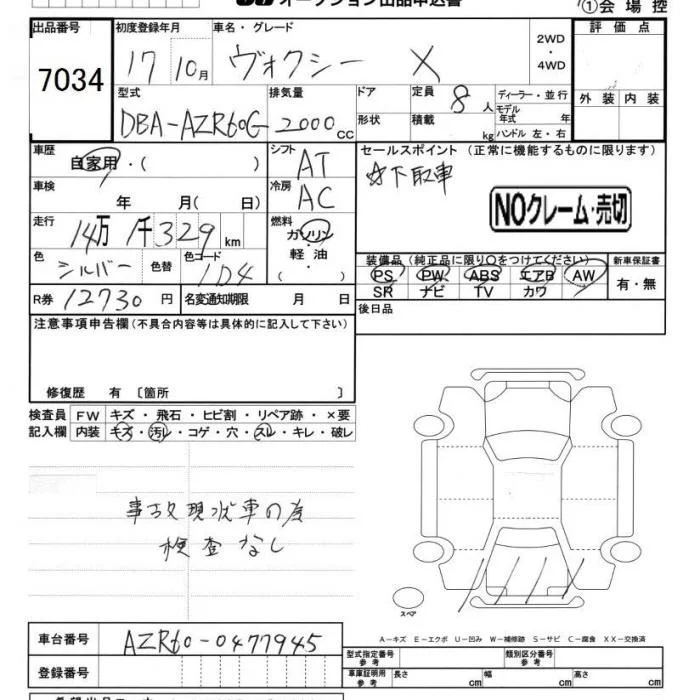 オークション出品申込書 ①会場控
出品番号 初度登録年月 車名・グレード 2WD・4WD 評価点
7034 17 10月 ヴォクシー X
型式 排気量 ドア 定員 8人 ディーラー・並行 外装 内装
DBA-AZR60G 2000cc 形状 積載 kg モデル年式 年 ハンドル 左・右
車歴 自家用・( ) シフト AT セールスポイント (正常に機能するものに限ります)
車検 年 月(日) 冷房 AC ☆下取車
NOクレーム・売切
走行 14万 1千329km 燃料 ガソリン・軽油・( )
色 シルバー 色替 色コード 1D4 装備品(純正品に限り○をつけてください) 新車保証書
PS PW ABS エアB AW 有・無
SR ナビ TV カワ
R券 12730円 名変通知期限 月 日 後日品
注意事項申告欄(不具合内容等は具体的に記入して下さい)
修復歴 有 〔箇所 〕
検査員 FW キズ・飛石・ヒビ割・リペア跡・×要
記入欄 内装 キズ・汚レ・コゲ・穴・スレ・キレ・破レ
事故現状車の為
検査なし
スペア
A-キズ E-エクボ U-凹み W-補修跡 S-サビ C-腐食 XX-交換済
車台番号 AZR60-0477945 型式指定番号 参考 類別区分番号 参考
登録番号 車庫証明用 参考 長さ cm 幅 cm 高さ cm